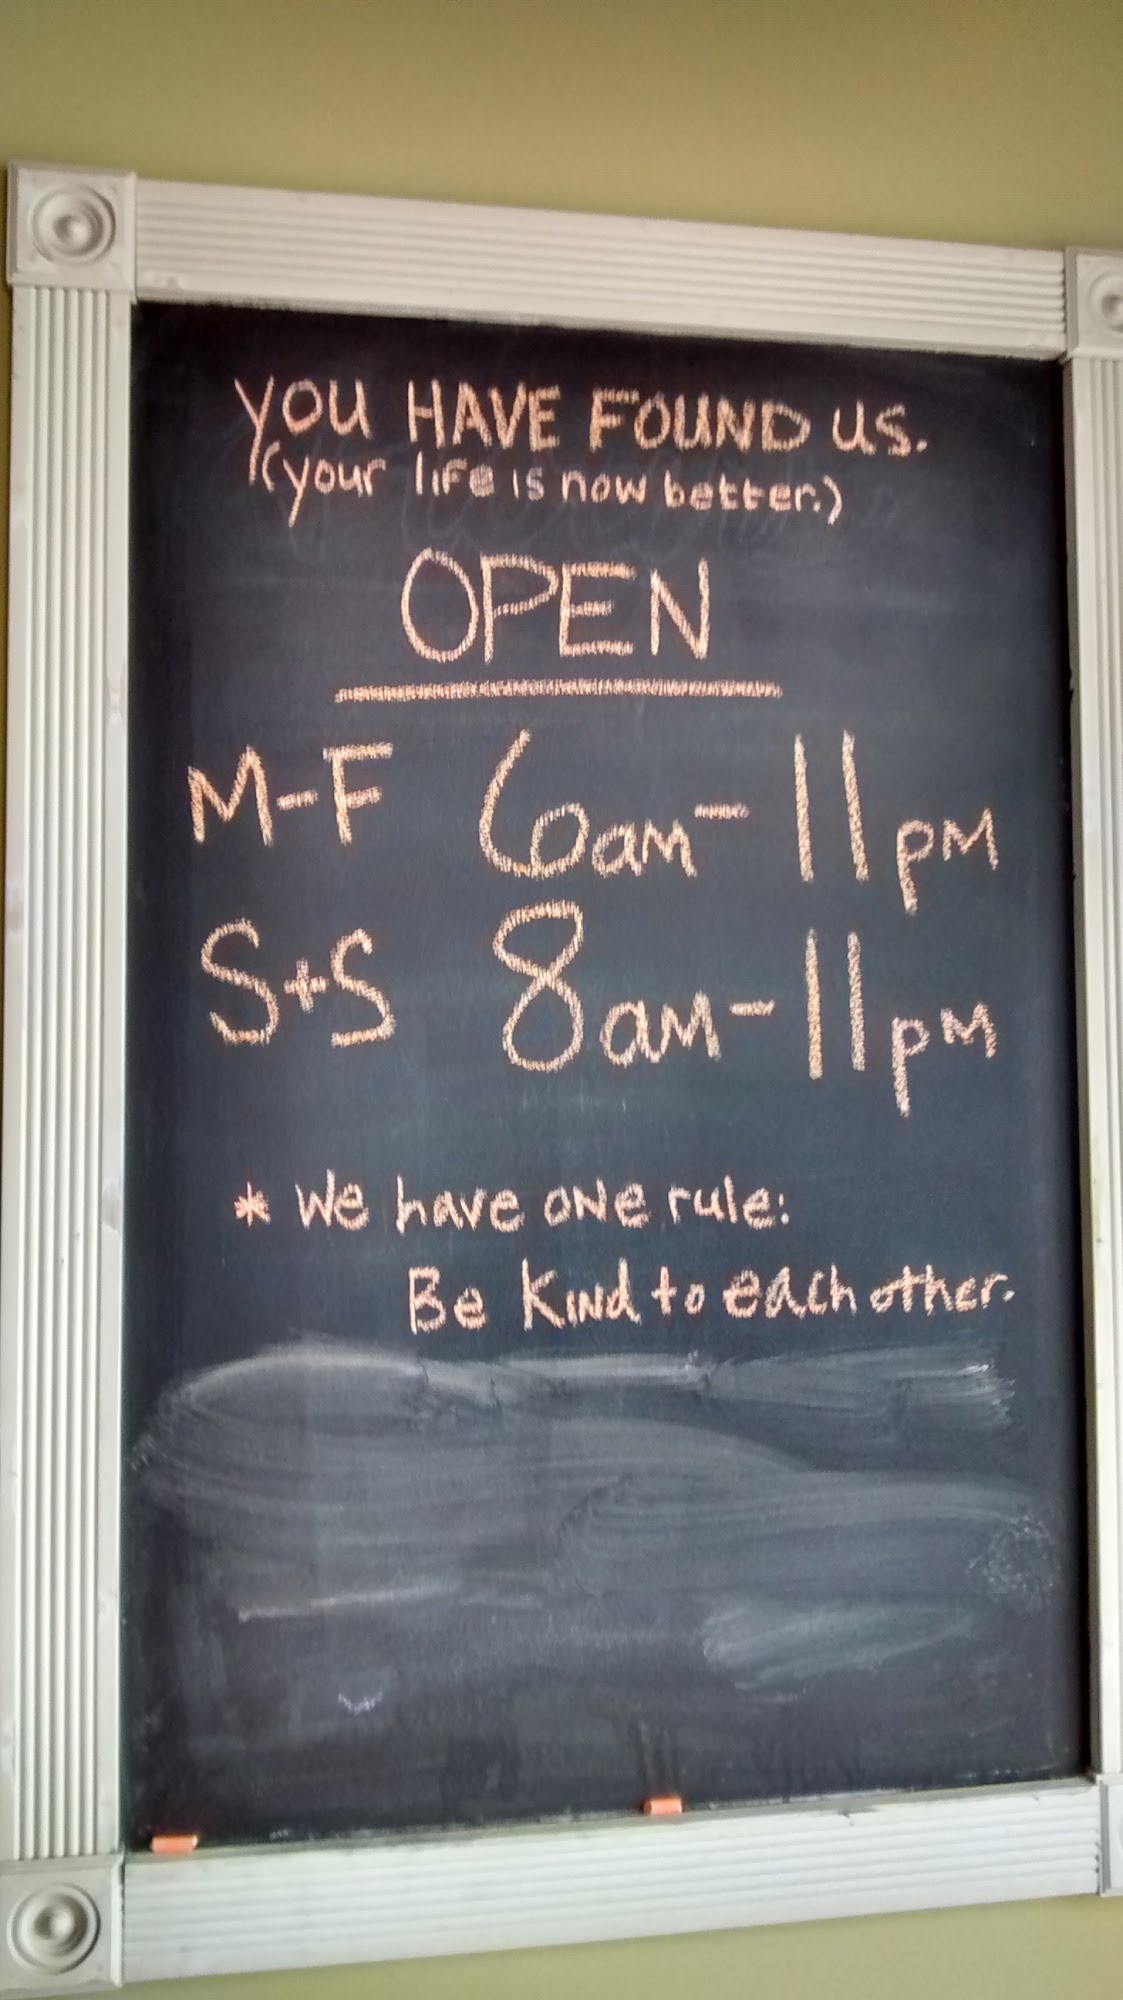 YOU HAVE FOUND US.
(your life is now better.)
OPEN
M-F 6am-11pm
S+S 8am-11pm
* We have one rule:
Be Kind to each other.